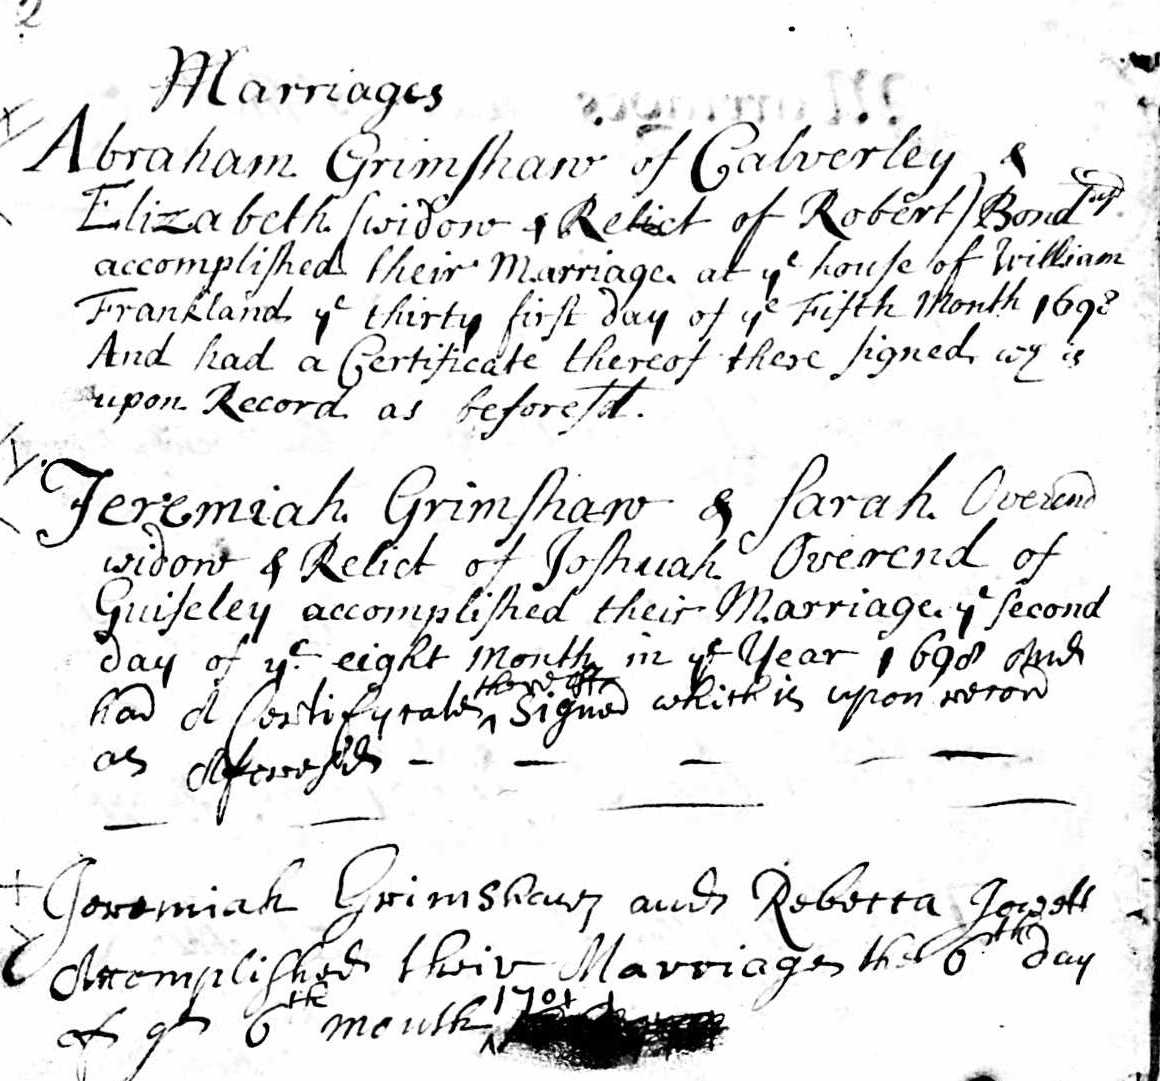 2
Marriages
Abraham Grimshaw of Calverley &
Elizabeth (widow & Relict of Robert) Bond
accomplished their Marriage at ye house of William
Frankland ye thirty first day of ye Fifth Month 1698
And had a Certificate thereof there signed wch is
upon Record as beforesd.
Jeremiah Grimshaw & Sarah Overend
widow & Relict of Joshuah Overend of
Guiseley accomplished their Marriage ye second
day of ye eight Month in ye Year 1698 And
had A Certifycate thereof Signed which is upon record
as Aforesd
Jeremiah Grimshaw and Rebecca Jowett
Accomplished their Marriage the 6th day
of ye 6th month 1701